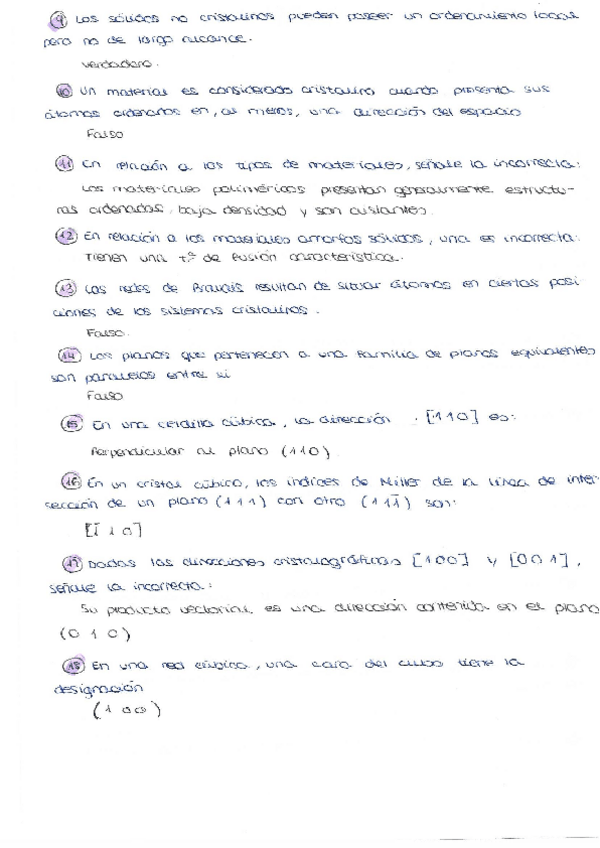 9 Los sólidos no cristalinos pueden poseer un ordenamiento local
pero no de largo alcance.
Verdadero.
10 Un material es considerado cristalino cuando presenta sus
átomos ordenados en, al menos, una dirección del espacio
Falso
11 En relación a los tipos de materiales, señale la incorrecta:
Los materiales poliméricos presentan generalmente estructu-
ras ordenadas, baja densidad y son aislantes.
12 En relación a los materiales amorfos sólidos, una es incorrecta:
Tienen una tª de fusión característica.
13 Las redes de Bravais resultan de situar átomos en ciertas posi
ciones de los sistemas cristalinos.
Falso.
14 Los planos que pertenecen a una familia de planos equivalentes
son paralelos entre sí
Falso
15 En una celdilla cúbica, la dirección [110] es:
Perpendicular al plano (110).
16 En un cristal cúbico, los índices de Miller de la línea de inter-
sección de un plano (111) con otro (111̄) son:
[1̄10]
17 Dadas las direcciones cristalográficas [100] y [001],
señale la incorrecta:
Su producto vectorial es una dirección contenida en el plano
(010)
18 En una red cúbica, una cara del cubo tiene la
designación
(100)